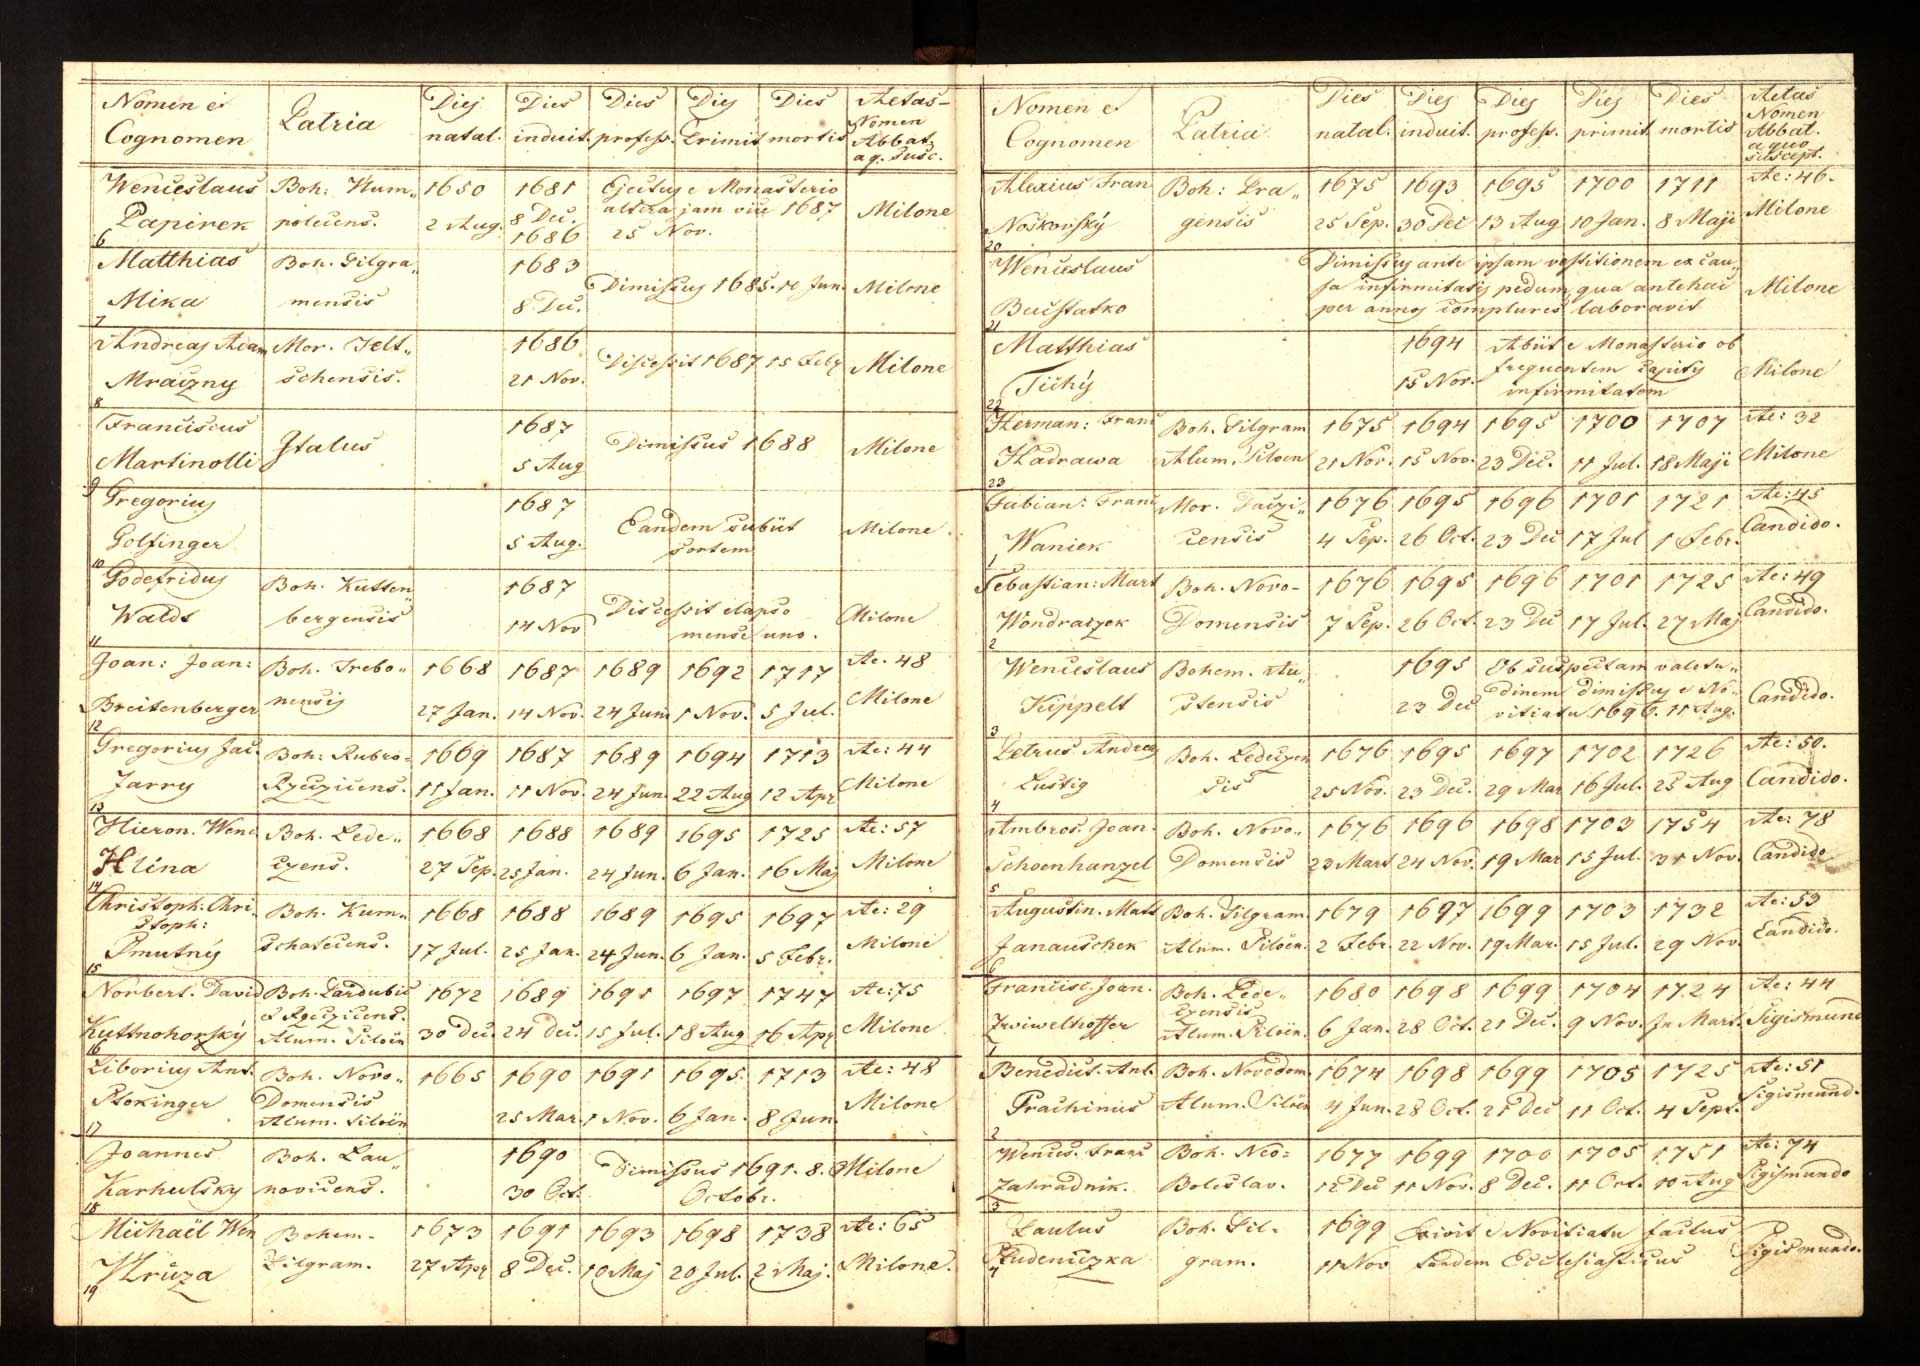 Nomen et Cognomen | Patria | Dies natal. | Dies induit. | Dies profess. | Dies Primit. | Dies mortis | Aetas Nomen Abbat. a q. susc.
Wenceslaus Papirek | Boh: Hum„ polecens. | 1650 2 Aug. | 1681 8 Dec. 1686 | Ejectus e Monasterio altera jam vice 1687 25 Nov. | Milone
6
Matthias Mika | Boh. Pilgra„ mensis | 1683 8 Dec. | Dimissus 1685. Jun. | Milone
7
Andreas Adam Mraczny | Mor. Telt„ schensis. | 1686 21 Nov. | Discessit 1687 15 Feb | Milone
8
Franciscus Martinolli | Italus | 1687 5 Aug | Dimissus 1688 | Milone
9
Gregorius Golfinger | 1687 5 Aug. | Eandem subiit sortem | Milone
10
Godefridus Waldt | Boh. Kutten„ bergensis | 1687 14 Nov | Discessit elapso mense uno. | Milone
11
Joan: Joan: Breitenberger | Boh. Trebo„ nensis | 1668 27 Jan. | 1687 14 Nov. | 1689 24 Jun | 1692 1 Nov. | 1717 5 Jul. | Ae. 48 Milone
12
Gregorius Jac. Jarry | Boh: Rubro= Rzeczicens. | 1669 11 Jan. | 1687 11 Nov. | 1689 24 Jun. | 1694 22 Aug | 1713 12 Apr | Ae: 44 Milone
13
Hieron. Wenc Hlina | Boh. Lede„ czens. | 1668 27 Sep. | 1688 25 Jan. | 1689 24 Jun. | 1695 6 Jan. | 1725 16 Maj | Ae: 57 Milone
14
Christoph: Chri„ stoph: Smutný | Boh. Kum„ schatecens. | 1668 17 Jul. | 1688 25 Jan. | 1689 24 Jun. | 1695 6 Jan. | 1697 5 Febr. | Ae: 29 Milone
15
Norbert. David Kuttnohorský | Boh. Pardubic Rzeczicens. Alum. Siloën | 1672 30 Dec. | 1689 24 Dec. | 1691 15 Jul. | 1697 18 Aug | 1747 16 Apr | Ae: 75 Milone
16
Liborius Ant. Plokinger | Boh. Novo„ Domensis Alum. Siloën | 1665 | 1690 25 Mar. | 1691 1 Nov. | 1695. 6 Jan. | 1713 8 Jun. | Ae: 48 Milone
17
Joannes Karhulsky | Boh. Lau„ novicens. | 1690 30 Oct. | Dimissus 1691. 8. Octobr. | Milone
18
Michaël Wen Hruza | Bohem. Pilgram. | 1673 27 Apr | 1691 8 Dec. | 1693 10 Maj | 1698 20 Jul. | 1738 2 Maj. | Ae: 65 Milone.
19
Nomen et Cognomen | Patria | Dies natal. | Dies induit. | Dies profess. | Dies primit. | Dies mortis | Aetas Nomen Abbat. a quo suscept.
Alexius Fran Noskovský | Boh: Pra„ gensis | 1675 25 Sep. | 1693 30 Dec | 1695 13 Aug | 1700 10 Jan. | 1711 8 Maji | Ae: 46. Milone
20
Wenceslaus Bucstatko | Dimissus ante ipsam vestitionem ex cau„ sa infirmitatis pedum, qua antehac per annos complures laboravit | Milone
21
Matthias Tichý | 1694 15 Nov. | Abiit e Monasterio ob frequentem capitis infirmitatem | Milone
22
Herman: Franc Hadrawa | Boh. Pilgram Alum. Siloen | 1675 21 Nov. | 1694 15 Nov. | 1695 23 Dec. | 1700 11 Jul. | 1707 18 Maji | Ae: 32 Milone
23
Fabian: Franc Waniek | Mor. Daczi„ censis | 1676 4 Sep. | 1695 26 Oct. | 1696 23 Dec | 1701 17 Jul | 1721 1 Febr. | Ae: 45 Candido.
1
Sebastian: Mart Wondraczek | Boh. Novo- Domensis | 1676 7 Sep. | 1695 26 Oct. | 1696 23 Dec | 1701 17 Jul. | 1725 27 Maj | Ae: 49 Candido.
2
Wenceslaus Küppelt | Bohem. Au„ stensis | 1695 23 Dec | Ob suspectam valetu„ dinem dimissus e No„ vitiatu 1696. 11 Aug. | Candido.
3
Petrus Andreas Lustig | Boh. Ledeczen sis | 1676 25 Nov. | 1695 23 Dec. | 1697 29 Mar | 1702 16 Jul. | 1726 25 Aug | Ae: 50. Candido.
4
Ambros. Joan. Schoenhanzel | Boh. Novo„ Domensis | 1676 23 Mart | 1696 24 Nov. | 1698 19 Mar | 1703 15 Jul. | 1754 31 Nov. | Ae: 78 Candido
5
Augustin. Matt Janauschek | Boh. Pilgram Alum. Siloën. | 1679 2 Febr. | 1697 22 Nov. | 1699 19 Mar. | 1703 15 Jul. | 1732 29 Nov. | Ae: 53 Candido.
6
Francisc. Joan. Zwiwelhoffer | Boh. Lede„ czensis Alum. Siloën. | 1680 6 Jan. | 1698 28 Oct. | 1699 21 Dec. | 1704 9 Nov. | 1724 Mart. | Ae: 44 Sigismund
1
Benedict. Ant. Prachinus | Boh. Novodom. Alum. Siloën | 1674 4 Jun. | 1698 28 Oct. | 1699 21 Dec | 1705 11 Oct. | 1725 4 Sept. | Ae: 51 Sigismund.
2
Wences. Franc Zahradnik. | Boh. Neo= Boleslav. | 1677 12 Dec | 1699 11 Nov. | 1700 8 Dec. | 1705 11 Oct. | 1751 10 Aug | Ae: 74 Sigismundo
3
Paulus Studeniczka | Boh. Pil- gram. | 1699 11 Nov | Exivit e Novitiatu factus tandem Ecclesiasticus | Sigismundo.
4